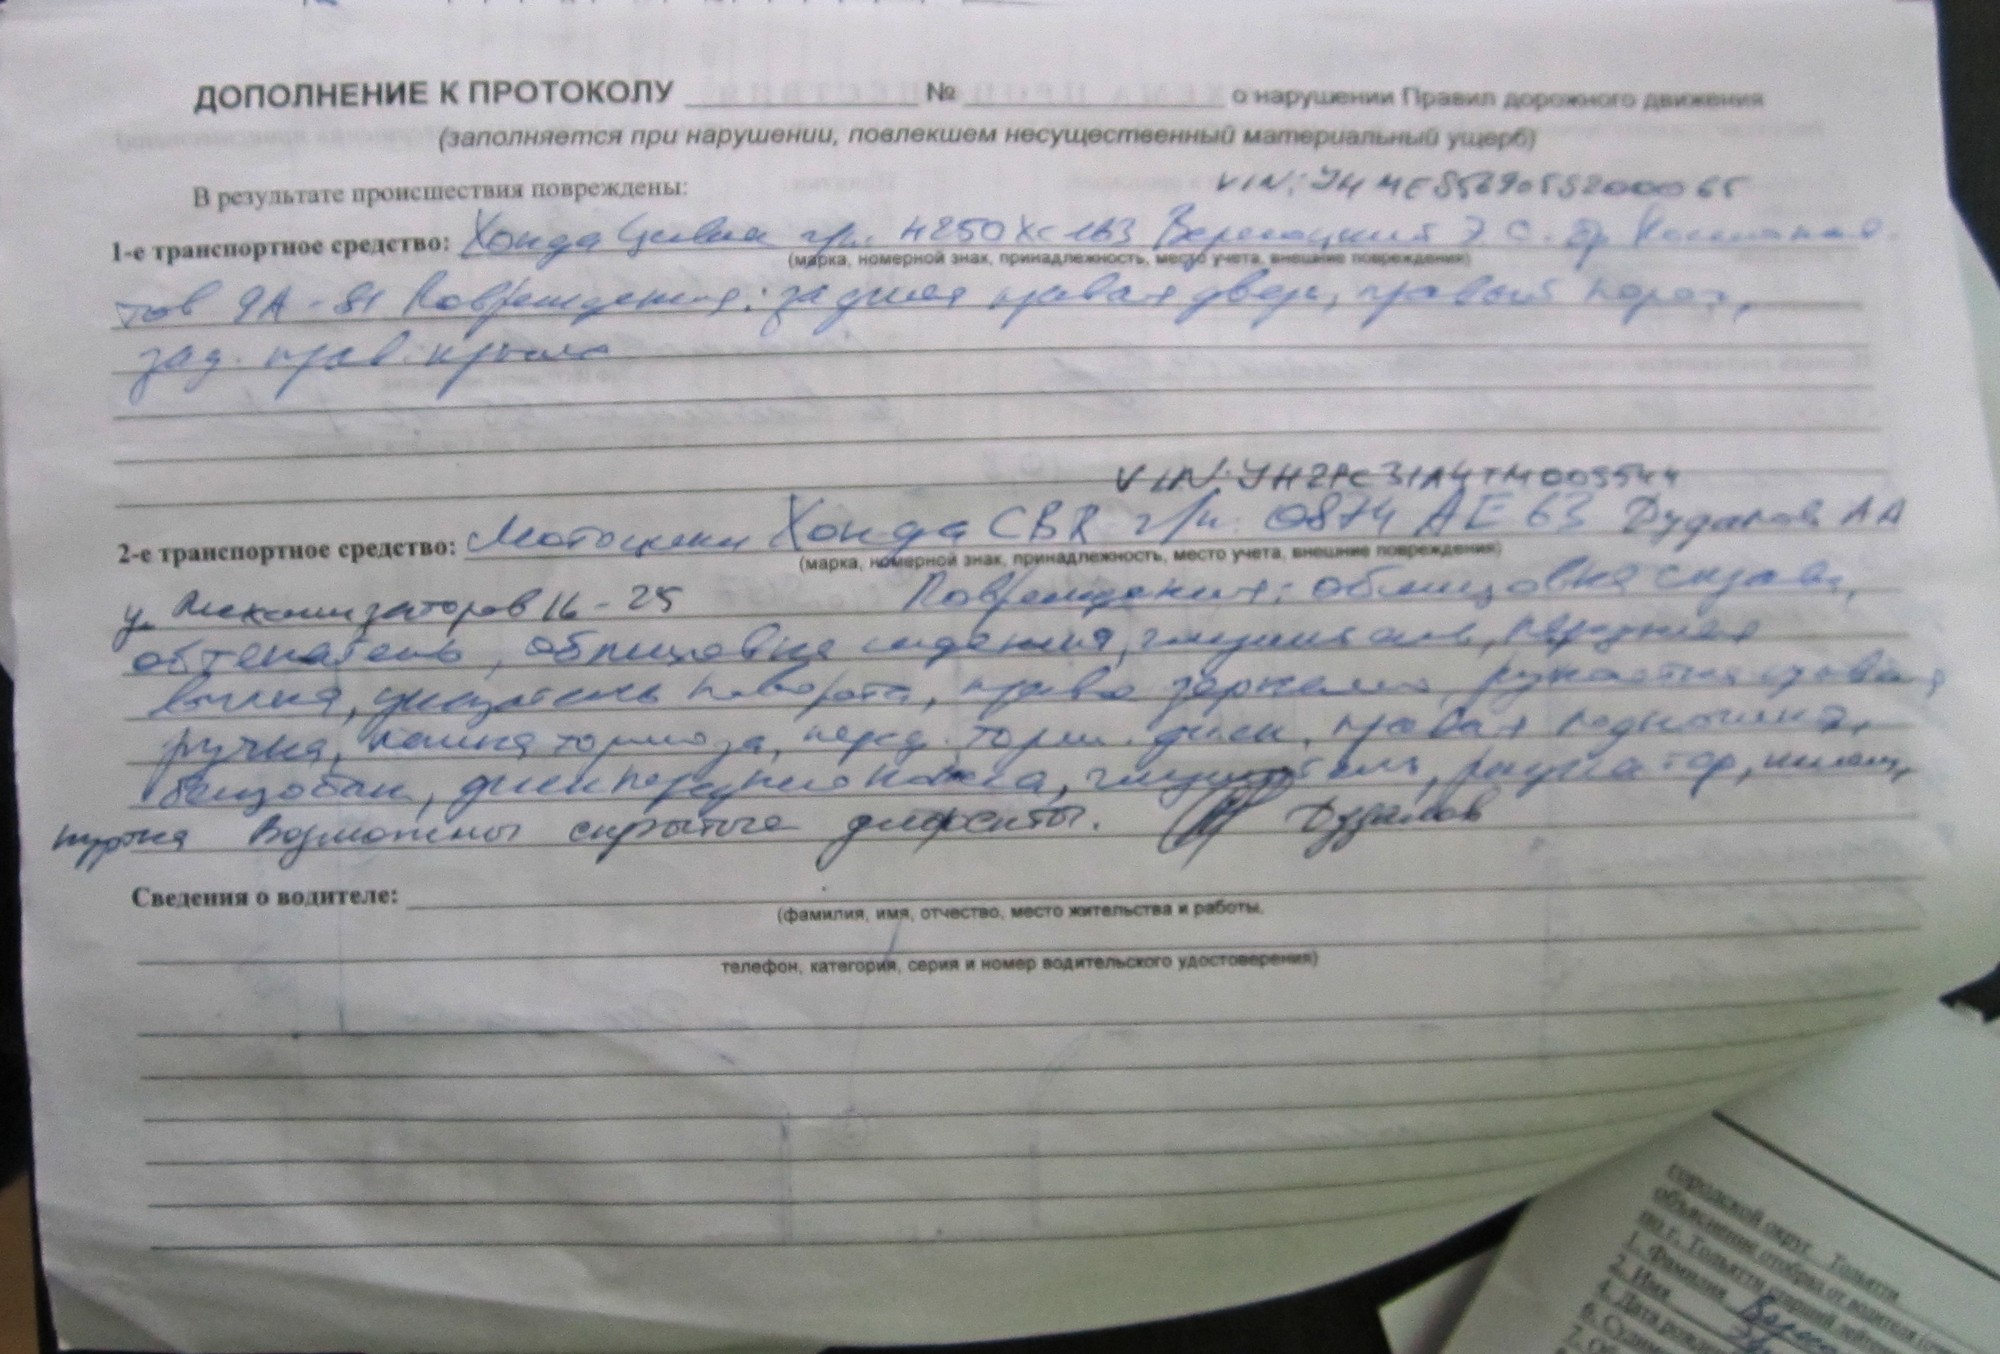 ДОПОЛНЕНИЕ К ПРОТОКОЛУ № о нарушении Правил дорожного движения
(заполняется при нарушении, повлекшем несущественный материальный ущерб)
В результате происшествия повреждены:
VIN:
1-е транспортное средство: Хонда Цивик г/н. Н250ХС163
(марка, номерной знак, принадлежность, место учета, внешние повреждения)
тов 9А-81 Повреждения: задняя правая дверь, правый порог,
зад. прав. крыло
VIN:
2-е транспортное средство: Мотоцикл Хонда CBR г/н. 0874 АЕ 63 Дудаков АА
(марка, номерной знак, принадлежность, место учета, внешние повреждения)
ул Механизаторов 16-25 Повреждения: облицовка справа,
обтекатель, облицовка сидения, глушитель, передняя
вилка, указатель поворота, право зеркало,
ручка, тормоза, перед. торм. диск, правая подножка,
бензобак, диск переднего колеса, глушитель, радиатор,
куртка Возможны скрытые дефекты. Дудаков
Сведения о водителе:
(фамилия, имя, отчество, место жительства и работы,
телефон, категория, серия и номер водительского удостоверения)
городской округ Тольятти
объяснение отобрал от водителя
по г. Тольятти старший
1. Фамилия
2. Имя
4. Дата рожд
6.
7.